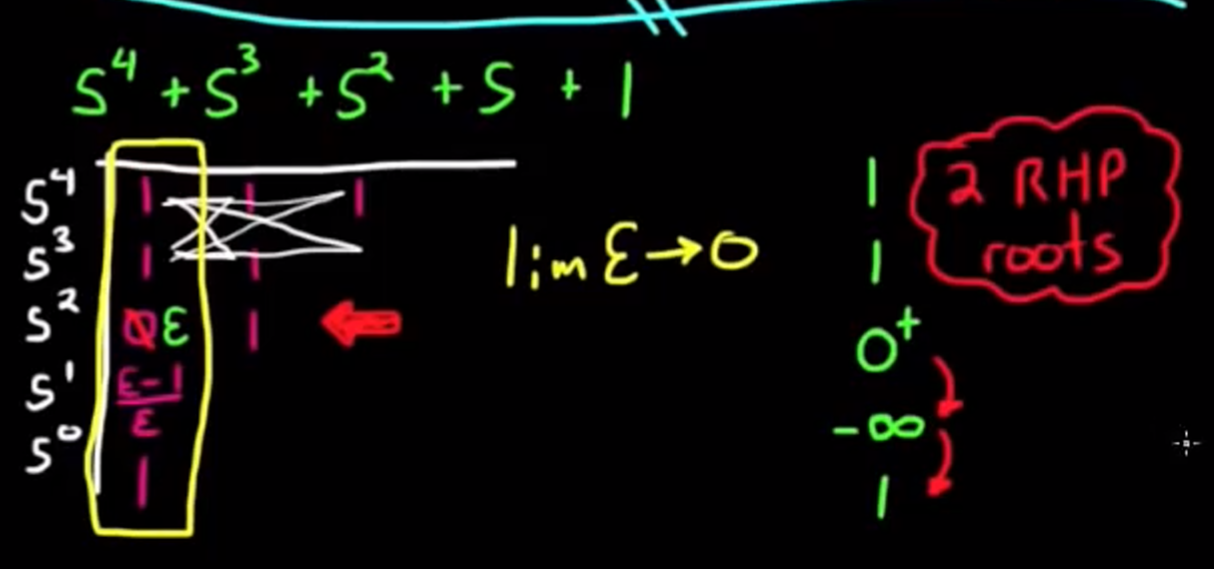 S⁴ + S³ + S² + S + 1
S⁴ 1 1 1
S³ 1 1
S² 0 ε 1
S¹ ε-1/ε
S⁰ 1
lim ε→0
1
1
0⁺
-∞
1
2 RHP
roots